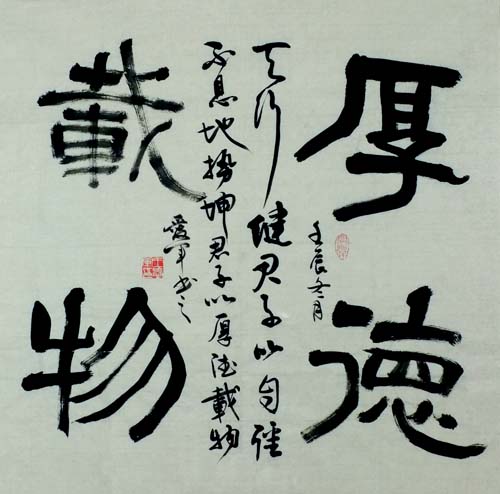 厚德
壬辰冬月
天行健君子以自强
不息地势坤君子以厚德載物
愛军书之
載物